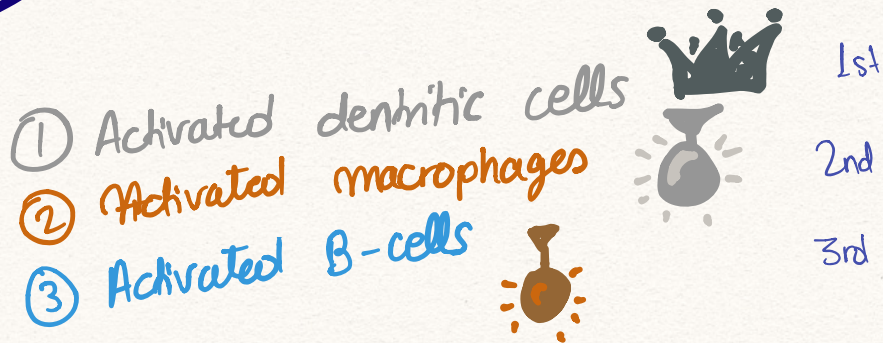 ① Activated dendritic cells 1st
② Activated macrophages 2nd
③ Activated B-cells 3rd